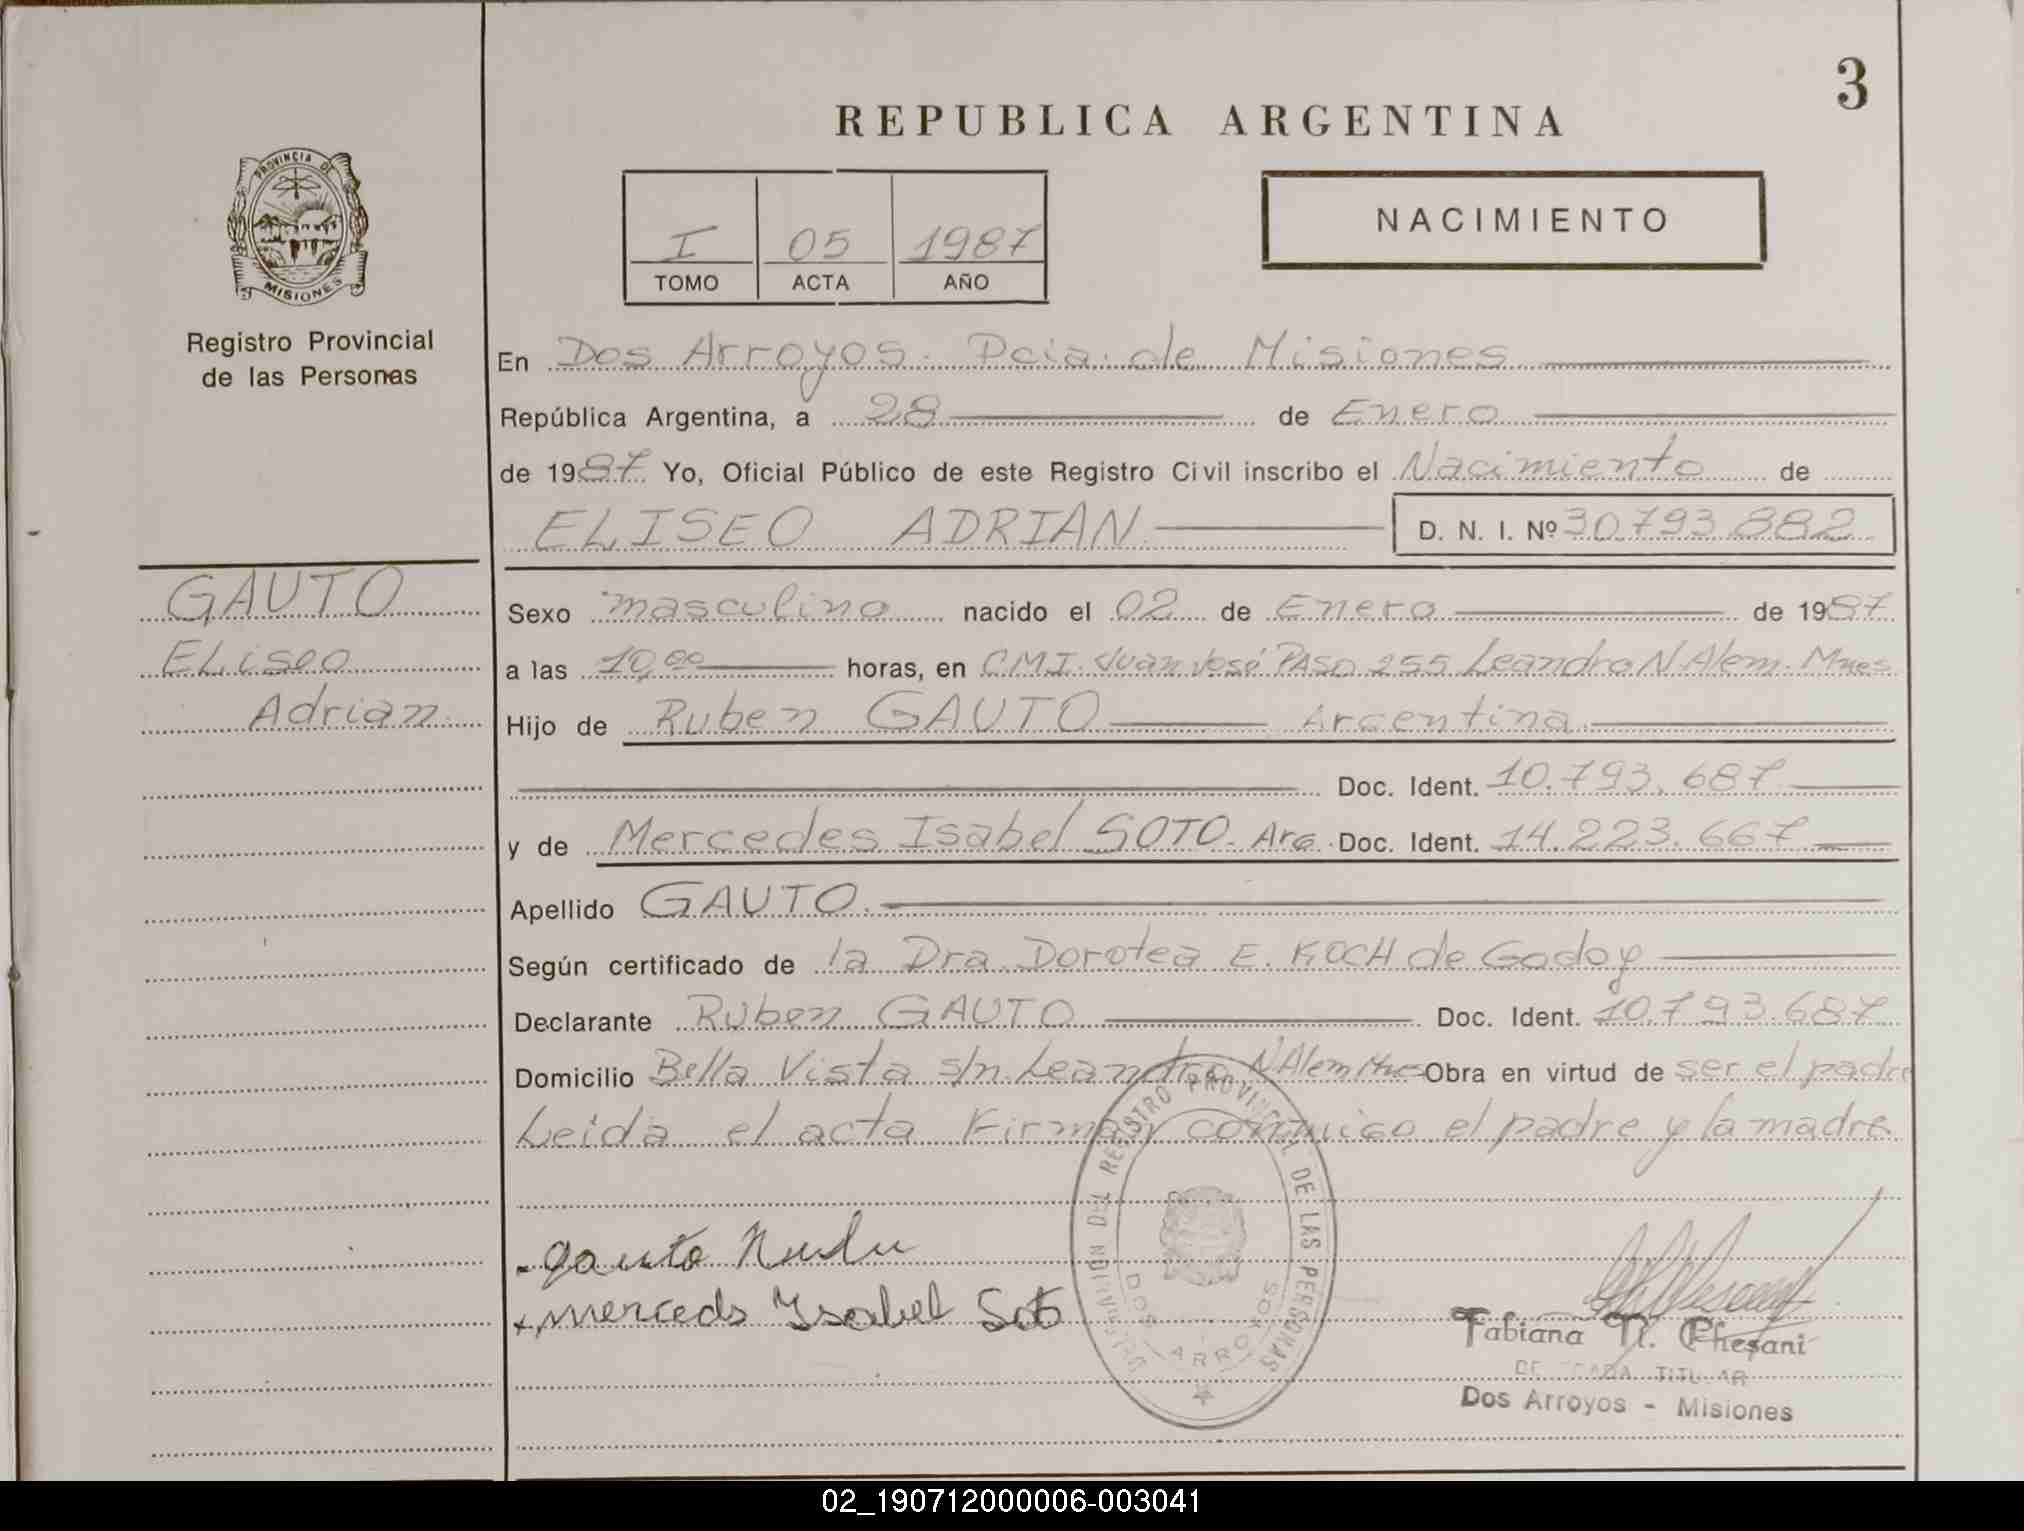 3
REPUBLICA ARGENTINA
PROVINCIA DE MISIONES
Registro Provincial
de las Personas
I 05 1987
TOMO ACTA AÑO
NACIMIENTO
En Dos Arroyos. Pcia. de Misiones
República Argentina, a 28 de Enero
de 1987 Yo, Oficial Público de este Registro Civil inscribo el Nacimiento de
ELISEO ADRIAN D. N. I. Nº 30.793.882
GAUTO
Eliseo
Adrian
Sexo masculino nacido el 02 de Enero de 1987
a las 10,00 horas, en C.M.I. Juan José PASO 255 Leandro N Alem. Mnes
Hijo de Ruben GAUTO Argentina
Doc. Ident. 10.793.687
y de Mercedes Isabel SOTO. Arg. Doc. Ident. 14.223.667
Apellido GAUTO.
Según certificado de la Dra. Dorotea E. KOCH de Godoy
Declarante Ruben GAUTO Doc. Ident. 10.793.687
Domicilio Bella Vista s/n. Leandro N Alem Mnes Obra en virtud de ser el padre
Leida el acta Firman conmigo el padre y la madre
gauto
merceds Ysabel Soto
DELEGACION DEL REGISTRO PROVINCIAL DE LAS PERSONAS
DOS ARROYOS
Fabiana N. Chesani
DELEGADA TITULAR
Dos Arroyos - Misiones
02_190712000006-003041